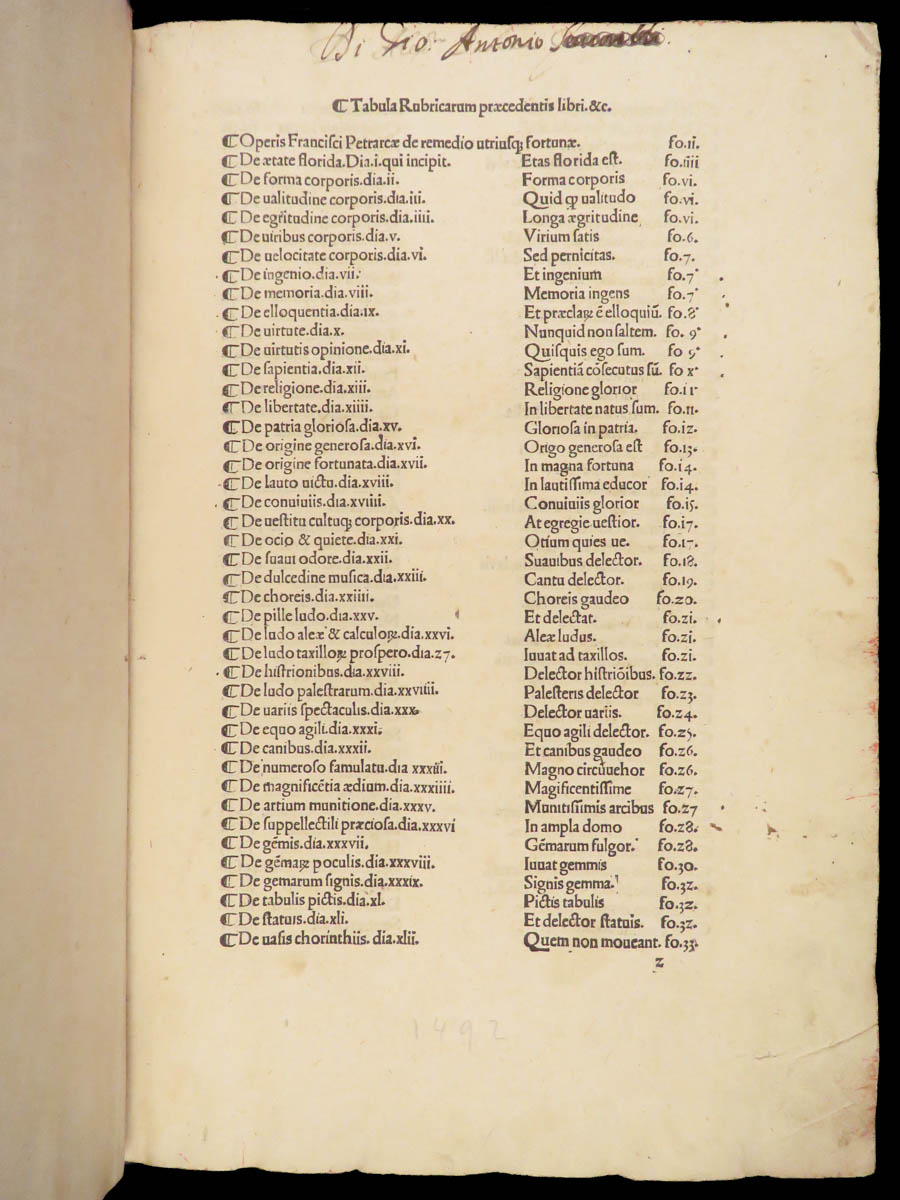 Di Gio: Antonio
⁋ Tabula Rubricarum præcedentis libri.&c.
⁋ Operis Francisci Petrarcæ de remedio utriusqꝫ fortunæ. fo.ii.
⁋ De ætate florida.Dia.i.qui incipit. Etas florida est. fo.iiii
⁋ De forma corporis.dia.ii. Forma corporis fo.vi.
⁋ De ualitudine corporis.dia.iii. Quid ꝙ ualitudo fo.vi.
⁋ De egritudine corporis.dia.iiii. Longa ægritudine fo.vi.
⁋ De uiribus corporis.dia.v. Virium satis fo.6.
⁋ De uelocitate corporis.dia.vi. Sed pernicitas. fo.7.
⁋ De ingenio.dia.vii. Et ingenium fo.7
⁋ De memoria.dia.viii. Memoria ingens fo.7
⁋ De elloquentia.dia.ix. Et præclaꝝ ē elloquiū. fo.8
⁋ De uirtute.dia.x. Nunquid non saltem. fo. 9
⁋ De uirtutis opinione.dia.xi. Quisquis ego sum. fo 9
⁋ De sapientia.dia.xii. Sapientiā cōsecutus sū. fo x
⁋ De religione.dia.xiii. Religione glorior fo.11
⁋ De libertate.dia.xiiii. In libertate natus sum. fo.11.
⁋ De patria gloriosa.dia.xv. Gloriosa in patria. fo.12.
⁋ De origine generosa.dia.xvi. Origo generosa est fo.13.
⁋ De origine fortunata.dia.xvii. In magna fortuna fo.14.
⁋ De lauto uictu.dia.xviii. In lautissima educor fo.14.
⁋ De conuiuiis.dia.xviiii. Conuiuiis glorior fo.15.
⁋ De uestitu cultuqꝫ corporis.dia.xx. At egregie uestior. fo.17.
⁋ De ocio & quiete.dia.xxi. Otium quies ue. fo.17.
⁋ De suaui odore.dia.xxii. Suauibus delector. fo.18.
⁋ De dulcedine musica.dia.xxiii. Cantu delector. fo.19.
⁋ De choreis.dia.xxiiii. Choreis gaudeo fo.20.
⁋ De pille ludo.dia.xxv. Et delectat. fo.21.
⁋ De ludo aleæ & calculoꝝ.dia.xxvi. Aleæ ludus. fo.21.
⁋ De ludo taxilloꝝ prospero.dia.27. Iuuat ad taxillos. fo.21.
⁋ De histrionibus.dia.xxviii. Delector histriōibus. fo.22.
⁋ De ludo palestrarum.dia.xxviiii. Palesteris delector fo.23.
⁋ De uariis spectaculis.dia.xxx. Delector uariis. fo.24.
⁋ De equo agili.dia.xxxi. Equo agili delector. fo.25.
⁋ De canibus.dia.xxxii. Et canibus gaudeo fo.26.
⁋ De numeroso famulatu.dia xxxiii. Magno circūuehor fo.26.
⁋ De magnificētia ædium.dia.xxxiiii. Magificentissime fo.27.
⁋ De artium munitione.dia.xxxv. Munitissimis arcibus fo.27
⁋ De suppellectili præciosa.dia.xxxvi In ampla domo fo.28.
⁋ De gēmis.dia.xxxvii. Gēmarum fulgor. fo.28.
⁋ De gēmaꝝ poculis.dia.xxxviii. Iuuat gemmis fo.30.
⁋ De gemarum signis.dia.xxxix. Signis gemma. fo.32.
⁋ De tabulis pictis.dia.xl. Pictis tabulis fo.32.
⁋ De statuis.dia.xli. Et delector statuis. fo.32.
⁋ De uasis chorinthiis. dia.xlii. Quem non moueant. fo.33.
2
1492